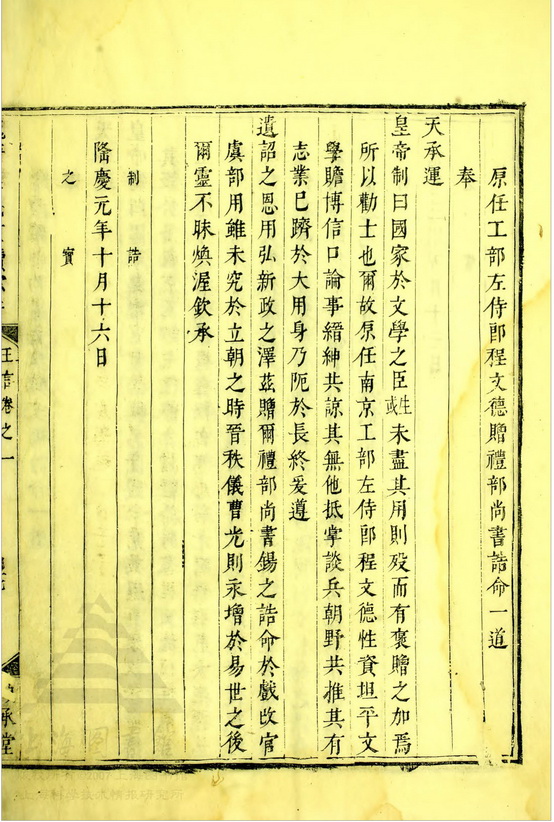 原任工部左侍郎程文德贈禮部尚書誥命一道
奉
天承運
皇帝制曰國家於文學之臣或生未盡其用則歿而有褒贈之加焉
所以勸士也爾故原任南京工部左侍郎程文德性資坦平文
學贍博信口論事縉紳共諒其無他抵掌談兵朝野共推其有
志業已躋於大用身乃阨於長終爰遵
遺詔之恩用弘新政之澤茲贈爾禮部尚書錫之誥命於戲改官
虞部用雖未究於立朝之時晉秩儀曹光則永增於易世之後
爾靈不昧煥渥欽承
制誥
隆慶元年十月十六日
之寶
王言卷之一
承堂